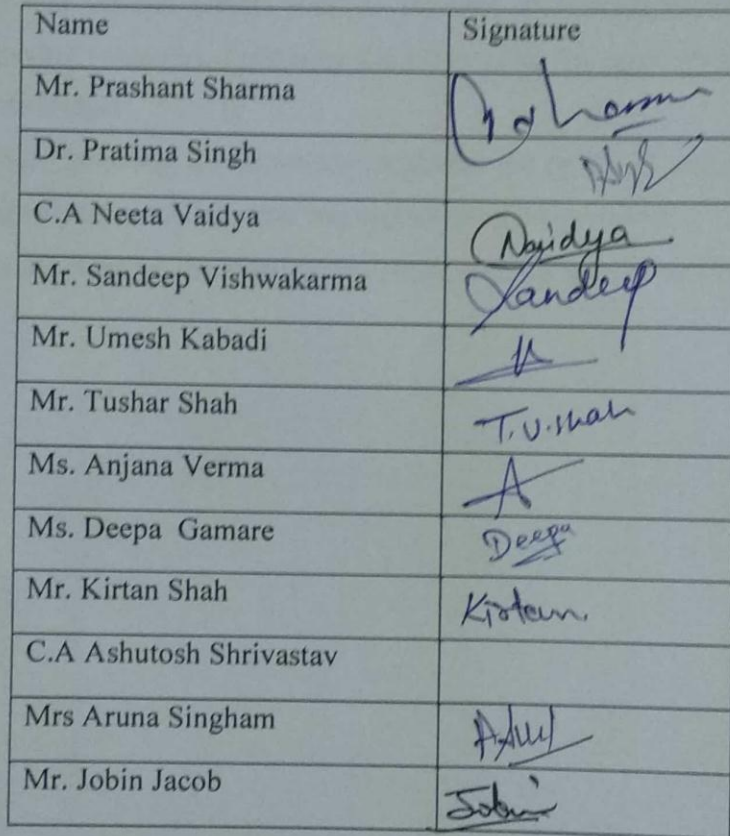 Name Signature
Mr. Prashant Sharma
Dr. Pratima Singh
C.A Neeta Vaidya Nvaidya
Mr. Sandeep Vishwakarma Sandeep
Mr. Umesh Kabadi
Mr. Tushar Shah T.U.shah
Ms. Anjana Verma A
Ms. Deepa Gamare Deepa
Mr. Kirtan Shah Kirtan.
C.A Ashutosh Shrivastav
Mrs Aruna Singham
Mr. Jobin Jacob Jobin